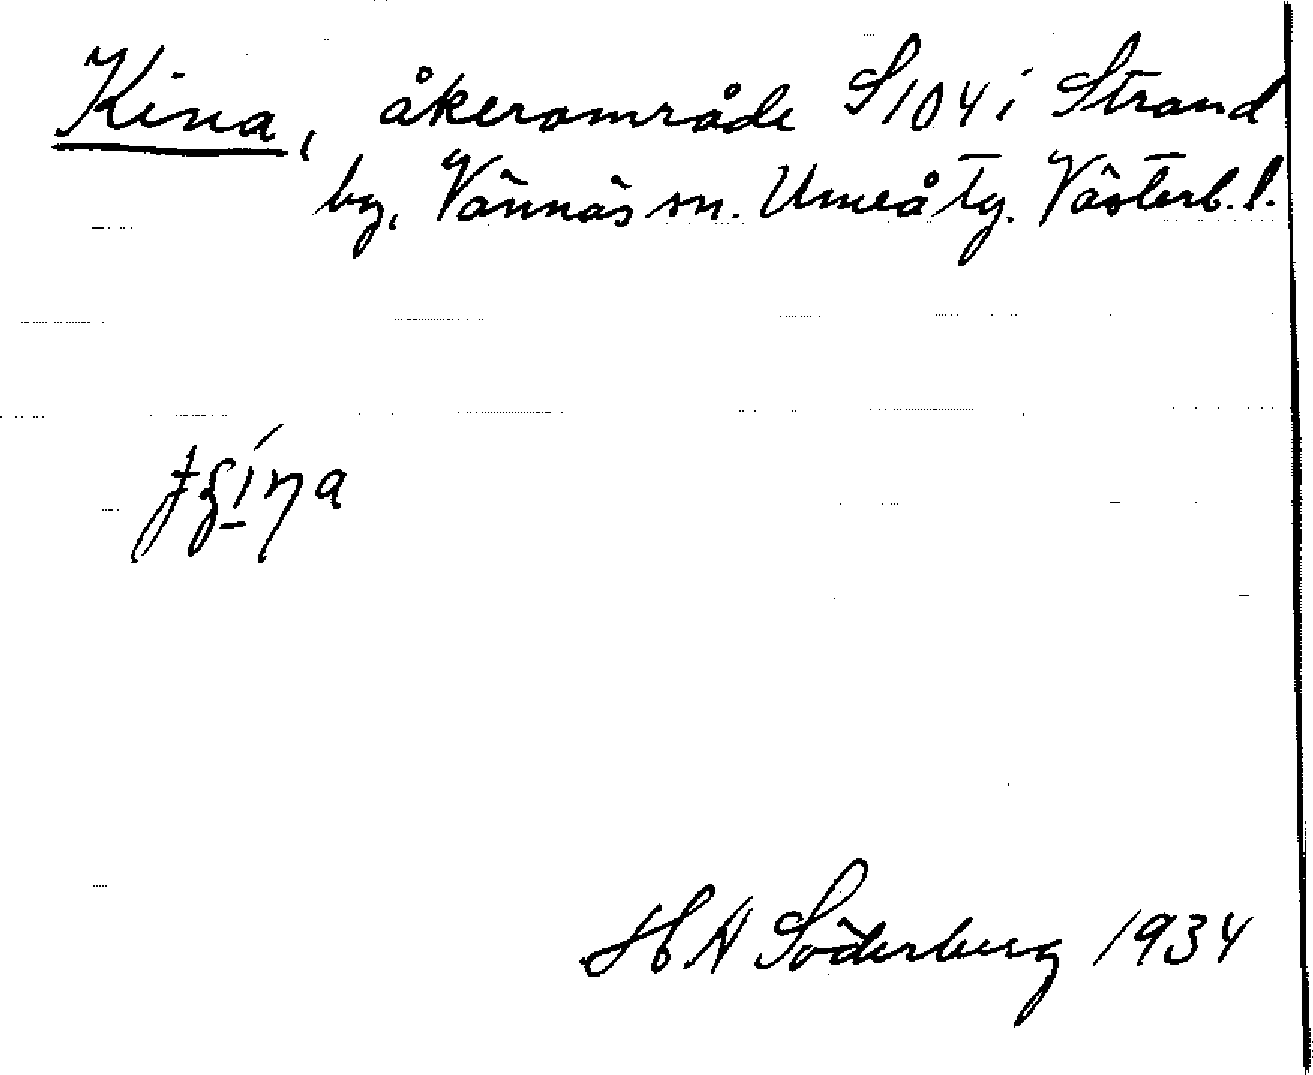 Kina, åkerområde S104 i Strand
by, Vännäs sn. Umeå tg. Västerb. l.
H A Söderberg 1934